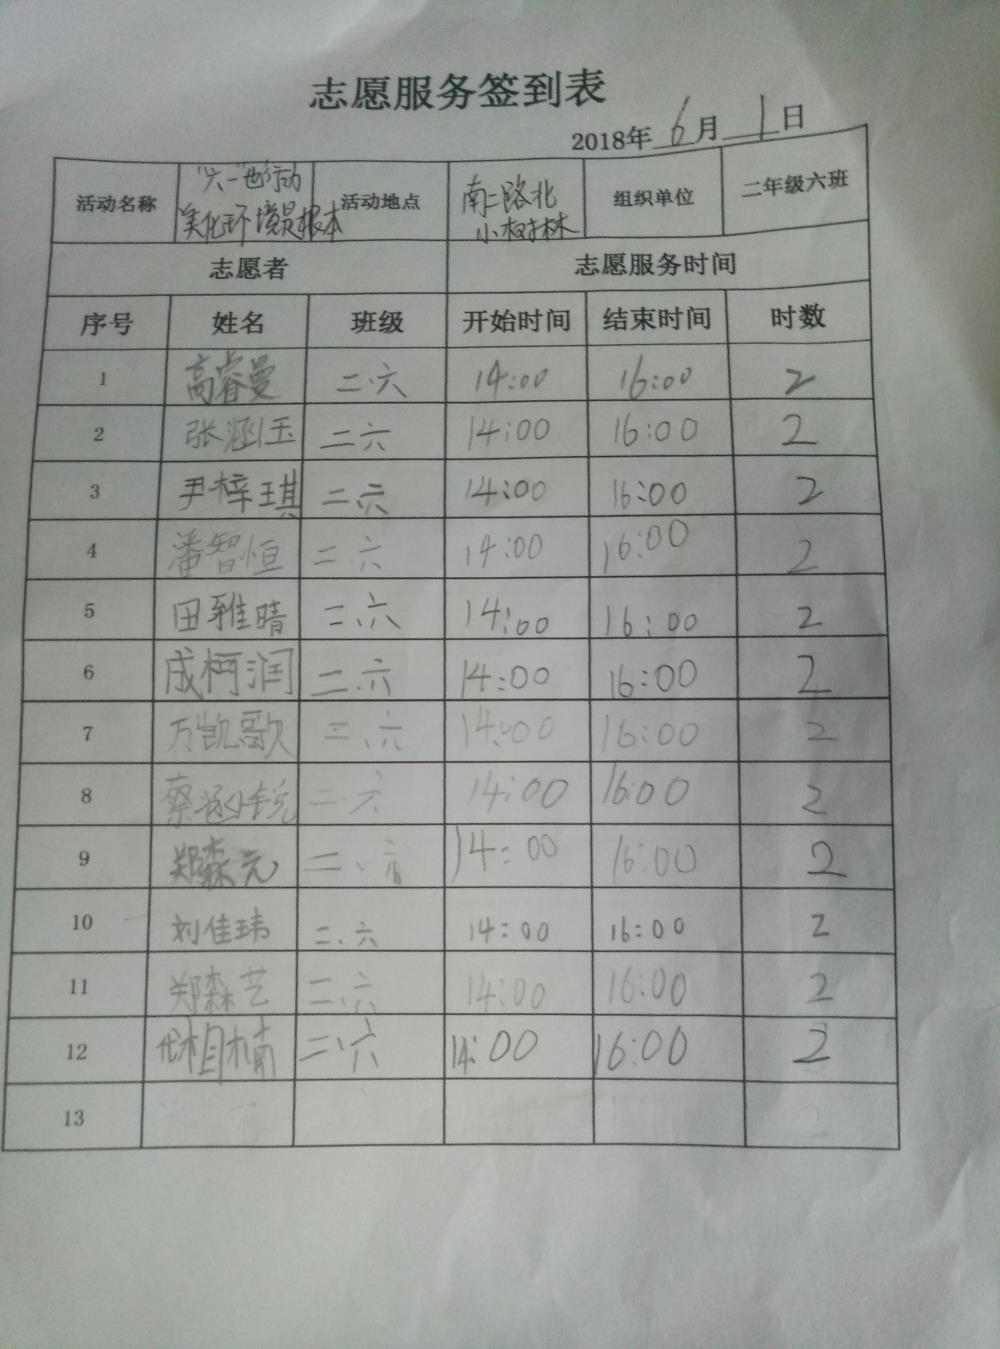 志愿服务签到表
2018年6月1日
活动名称 "六一"行动 美化环境是根本 活动地点 南二路北 小树林 组织单位 二年级六班
志愿者 志愿服务时间
序号 姓名 班级 开始时间 结束时间 时数
1 高睿曼 二.六 14:00 16:00 2
2 张涵玉 二六 14:00 16:00 2
3 尹梓琪 二.六 14:00 16:00 2
4 潘智恒 二.六 14:00 16:00 2
5 田雅晴 二、六 14:00 16:00 2
6 成柯润 二.六 14:00 16:00 2
7 万凯歌 二、六 14:00 16:00 2
8 蔡涵锐 二.六 14:00 16:00 2
9 郑森元 二、六 14:00 16:00 2
10 刘佳玮 二、六 14:00 16:00 2
11 郑森艺 二、六 14:00 16:00 2
12 相楠 二、六 14:00 16:00 2
13